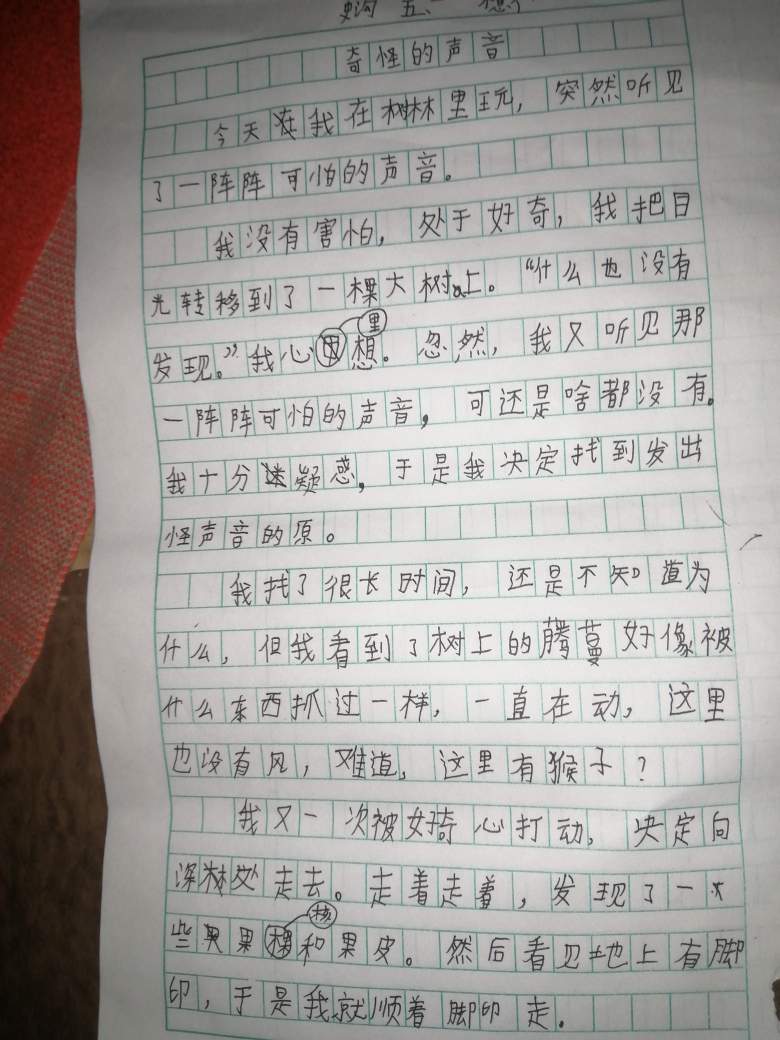 奇怪的声音
今天我在树林里玩，突然听见
了一阵阵可怕的声音。
我没有害怕，处于好奇，我把目
光转移到了一棵大树上。“什么也没有
发现。”我心里想。忽然，我又听见那
一阵阵可怕的声音，可还是啥都没有。
我十分疑惑，于是我决定找到发出
怪声音的原。
我找了很长时间，还是不知道为
什么，但我看到了树上的藤蔓好像被
什么东西抓过一样，一直在动，这里
也没有风，难道，这里有猴子？
我又一次被好奇心打动，决定向
深林处走去。走着走着，发现了一
些果核和果皮。然后看见地上有脚
印，于是我就顺着脚印走。